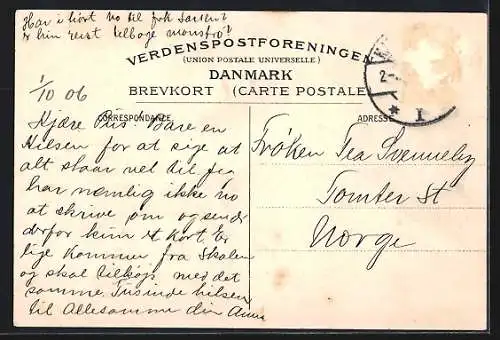 Har i hört no til frk Larsen?
er hun rest tilbage monstro?
VERDENSPOSTFORENINGEN
(UNION POSTALE UNIVERSELLE)
DANMARK
BREVKORT (CARTE POSTALE)
1/10 06
CORRESPONDANCE
ADRESSE
Kjære Pus. Bare en
Hilsen for at sige at
alt staar vel til. Jeg
har nemlig ikke no
at skrive om og sender
derfor kun et Kort. Er
lige kommen fra Skolen
og skal med det
samme. Tusinde hilsen
til Allesammen din Anna
Frøken Tea Svenneby
Tomter St
Norge
2
I